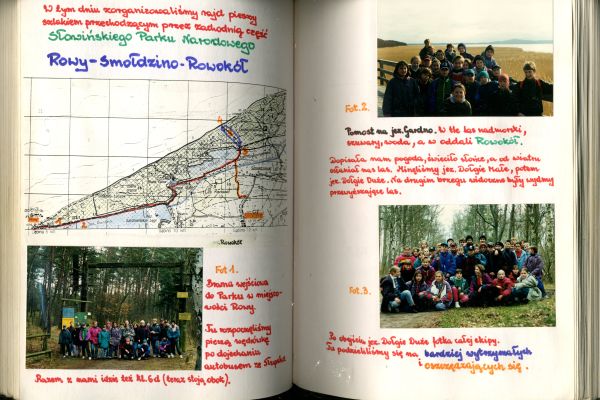 W tym dniu zorganizowaliśmy rajd pieszy
szlakiem przechodzącym przez zachodnią część
Słowińskiego Parku Narodowego
Rowy-Smołdzino-Rowokół
Rowokół
Fot 1.
Brama wejściowa
do Parku w miejsco-
wości Rowy.
Tu rozpoczęliśmy
pieszą wędrówkę
po dojechaniu
autobusem ze Słupska
Razem z nami idzie też kl. 6d (teraz stoją obok).
Fot. 2.
Pomost na jez. Gardno. W tle las nadmorski,
szuwary, woda, a w oddali Rowokół.
Dopisała nam pogoda, świeciło słońce, a od wiatru
osłaniał nas las. Minęliśmy jez. Dołgie Małe, potem
jez. Dołgie Duże. Na drugim brzegu widoczne były wydmy
przewyższające las.
Fot. 3.
Po obejściu jez. Dołgie Duże fotka całej ekipy.
Tu podzieliliśmy się na bardziej wytrzymałych
i oszczędzających się.